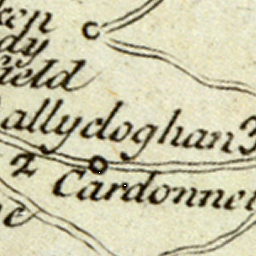 ken
dy
field
allycloghan 3
2
Cardonne